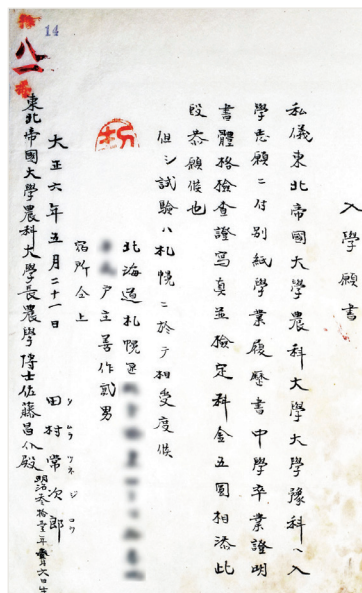 入學願書
私儀東北帝國大學農科大學大學豫科ヘ入
學志願ニ付別紙學業履歴書中學卒業證明
書體格檢查證寫真並檢定科金五圓相添此
段恭願候也
但シ試驗ハ札幌ニ於テ相受度候
北海道札幌區
戸主善作貳男
宿所仝上
大正六年五月二十一日
田村常次郎
タムラツネジロウ
明治參拾壹年 月六日生
東北帝國大學農科大學長農學博士佐藤昌介殿
14
八一